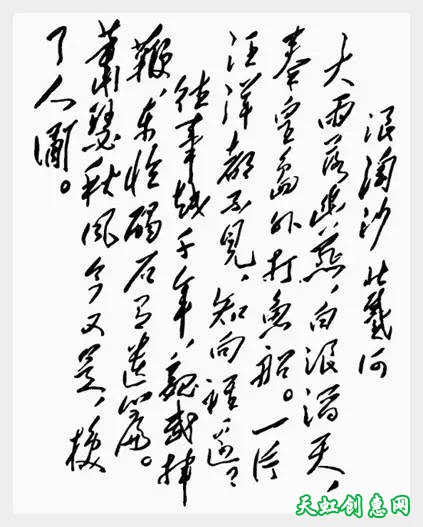 浪淘沙 北戴河
大雨落幽燕,白浪滔天,
秦皇島外打魚船。一片
汪洋都不見,知向誰邊?
往事越千年,魏武揮
鞭,東臨碣石有遺篇。
蕭瑟秋風今又是,換
了人間。
天虹创意网